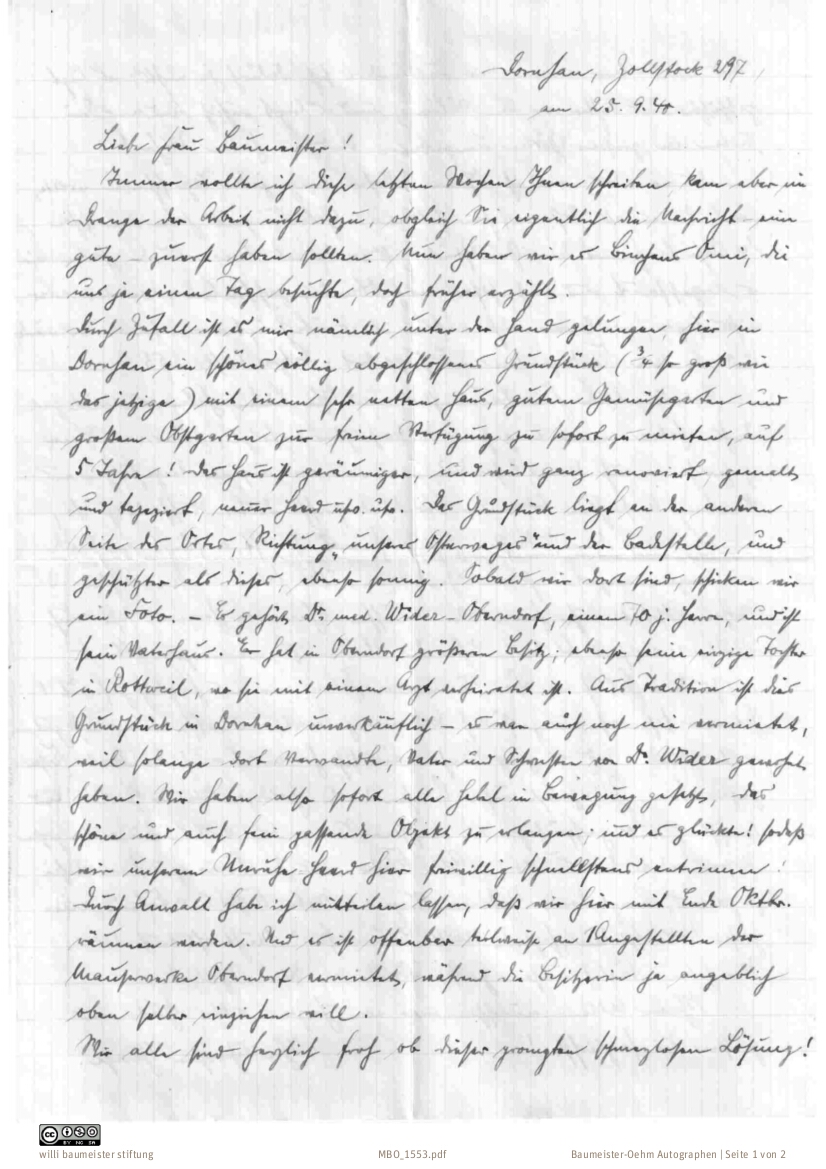 Dornhan, Zollstock 297,
am 25. 9. 40.
Liebe Frau Baumeister!
Immer wollte ich diese letzten Wochen Ihnen schreiben kam aber im
Drange der Arbeit nicht dazu, obgleich Sie eigentlich die Nachricht – eine
gute – zuerst haben sollten. Nun haben wir es Omi, die
uns ja einen Tag besuchte, doch früher erzählt.
Durch Zufall ist es mir nämlich unter der Hand gelungen, hier in
Dornhan ein schönes völlig abgeschlossenes Grundstück (¾ so groß wie
das jetzige) mit einem sehr netten Haus, gutem Gemüsegarten und
großem Obstgarten zur freien Verfügung zu sofort zu mieten, auf
5 Jahre! Das Haus ist geräumiger, und wird ganz renoviert, gemalt
und tapeziert, neuer Herd usw. usw. Das Grundstück liegt an der anderen
Seite des Ortes, Richtung „unseres Osterweges" und der Badestelle, und
geschützter als dieses, ebenso sonnig. Sobald wir dort sind, schicken wir
ein Foto. – Es gehört Dr. med. Wider-Oberndorf, einem 70 j. Herrn, und ist
sein Vaterhaus. Er hat in Oberndorf größeren Besitz; ebenso seine einzige Tochter
in Rottweil, wo sie mit einem Arzt verheiratet ist. Aus Tradition ist dies
Grundstück in Dornhan unverkäuflich – es war auch noch nie vermietet,
weil solange dort Verwandte, Vater und Schwester von Dr. Wider gewohnt
haben. Wir haben also sofort alle Hebel in Bewegung gesetzt, das
schöne und auch fein passende Objekt zu erlangen; und es glückte! sodaß
wir unserem Unruhe-Herd hier freiwillig schnellstens entrinnen!
Durch Anwalt habe ich mitteilen lassen, daß wir hier mit Ende Oktbr.
räumen werden. Und es ist offenbar teilweise an Angestellten der
Mauserwerke Oberndorf vermietet, während die Besitzerin ja angeblich
oben selber einziehen will.
Wir alle sind herzlich froh ob dieser prompten schmerzlosen Lösung!
willi baumeister stiftung
MBO_1553.pdf
Baumeister-Oehm Autographen | Seite 1 von 2
CC BY NC SA